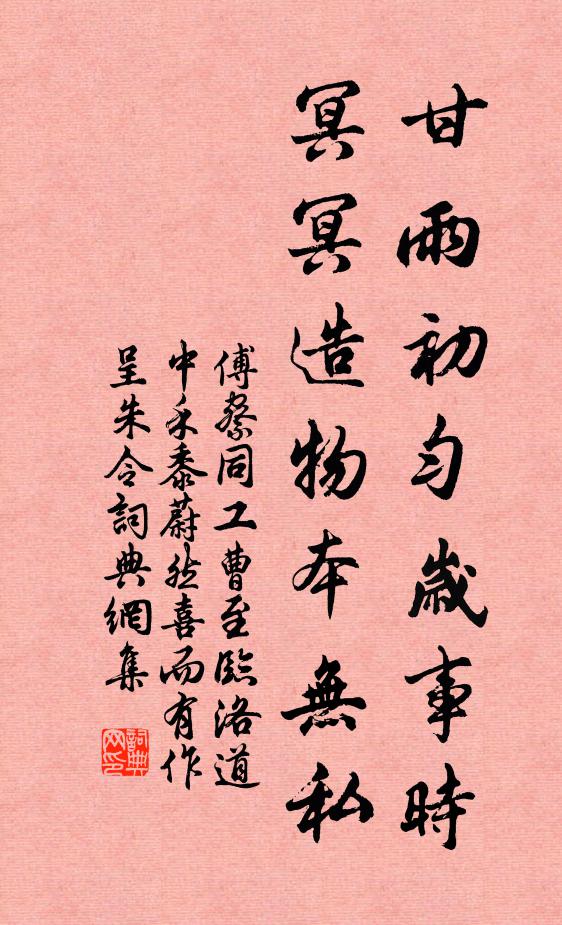 甘雨初匀歲事時
冥冥造物本無私
傅察同工曹至臨洛道
中禾黍蔚然喜而有作
呈朱令詞典網集
詞典
网印